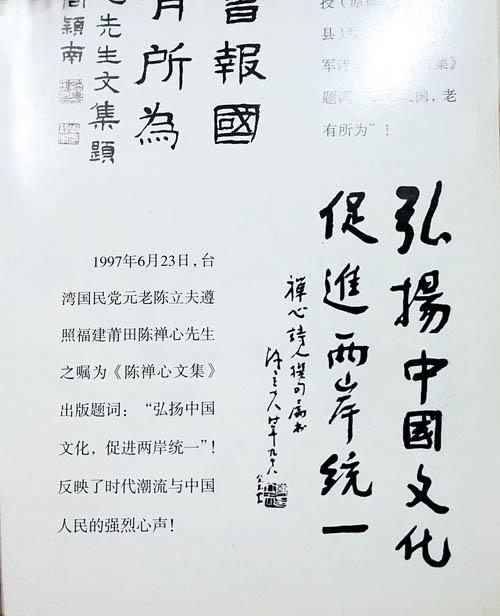 書報國
有所為
先生文集題
潁南
授
县)
军
题词
国,老
有所为”!
弘揚中國文化
促進兩岸統一
禪心詩人撰句属书
陳立夫 时年九十八
1997年6月23日,台
湾国民党元老陈立夫遵
照福建莆田陈禅心先生
之嘱为《陈禅心文集》
出版题词:“弘扬中国
文化,促进两岸统一”!
反映了时代潮流与中国
人民的强烈心声!